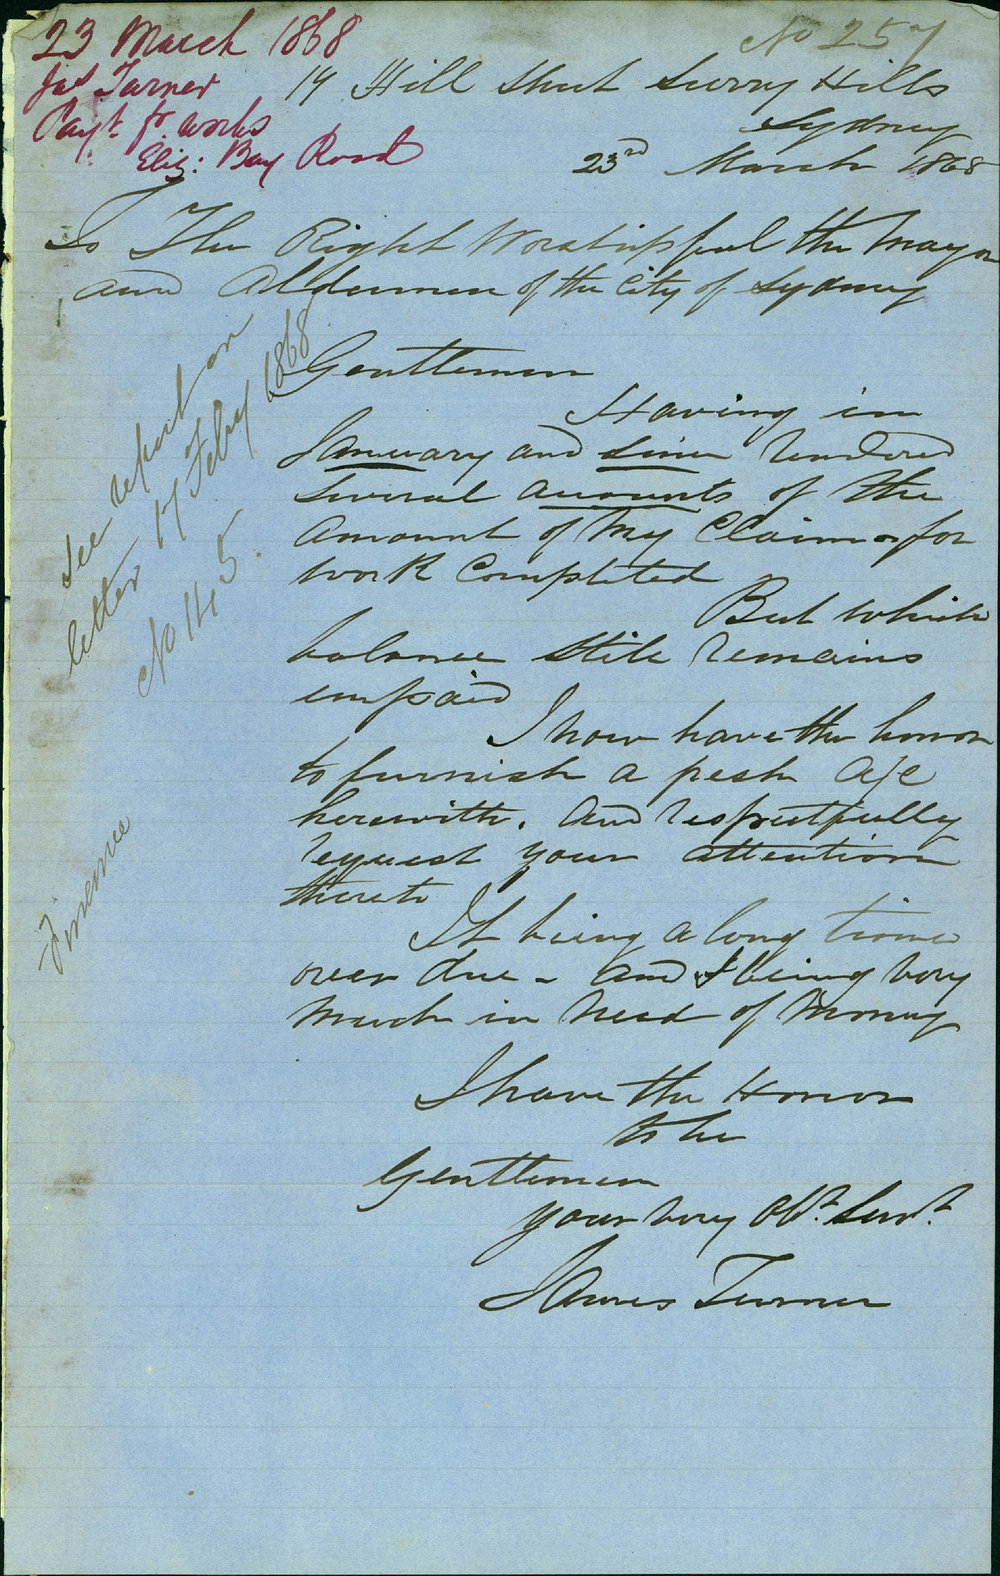 23 March 1868
Jas Turner
Payt. for works
Eliz: Bay Road
No 257
14 Hill Street Surry Hills
Sydney
23rd March 1868
To The Right Worshipful the Mayor
and Aldermen of the City of Sydney
Gentlemen
Having in
January and since rendered
several accounts of the
amount of my Claim for
work Completed
But which
balance still remains
unpaid
I now have the honor
to furnish a fresh a/c
herewith. And respectfully
request your attention
thereto
It being a long time
over due - and I being very
much in need of money
I have the Honor
to be
Gentlemen
your very Obt. Servt.
James Turner
See report on
letter 17 Feby 1868
No 145.
Finance